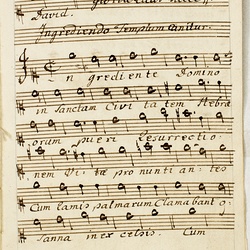 David.
Ingrediendo Templum Canitur.
In grediente Domino
in Sanctam Civi ta tem Hebræ
orum pueri resurrectio
nem Vi tæ pro nunti an tes
Cum ramis palmarum Clamabant o
sanna in ex celsis. Cum